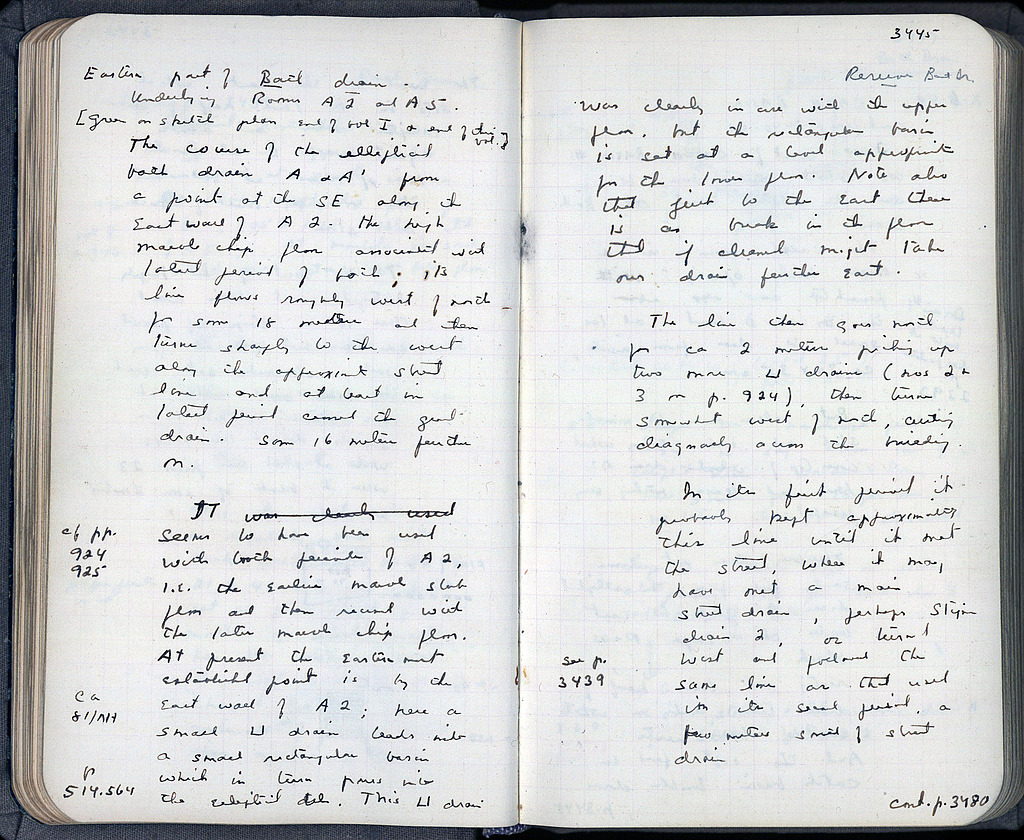 Eastern part of Bath drain.
Underlying Rooms A2 and A5.
[given on sketch plan end of vol. I & end of this vol.]
The course of the elliptical
bath drain A & A' from
a point at the SE along the
East wall of A2. The high
marble chip floor associated with
latest period of bath; its
line flows roughly west of north
for some 18 meters and then
turns sharply to the west
along the approximate street
line and at least in
latest period crossed the great
drain. Some 16 meters further
on.
IT was clearly used
cf pp.
924
925
seems to have been used
with both periods of A2,
i.e. the earlier marble slab
floor and then reused with
the later marble chip floor.
At present the Eastern most
established point is by the
East wall of A2; here a
ca
81/NH
small U drain leads into
a small rectangular basin
which in turn pours into
p
514.564
the elliptical drain. This U drain
3445
was clearly in use with the upper
floor, but the rectangular basin
is set at a level appropriate
for the lower floor. Note also
that just to the East there
is a break in the floor
that if cleaned might take
our drain further East.
The line then goes north
for ca 2 meters picking up
two more U drains (nos 2 &
3 on p. 924), then turns
somewhat west of north, cutting
diagonally across the building.
In its first period it
probably kept approximately
this line until it met
the street, where it may
have met a main
street drain, perhaps
drain 2, or turned
see p.
3439
west and followed the
same line as that used
in its second period, a
few meters south of street
drain.
cont. p. 3480